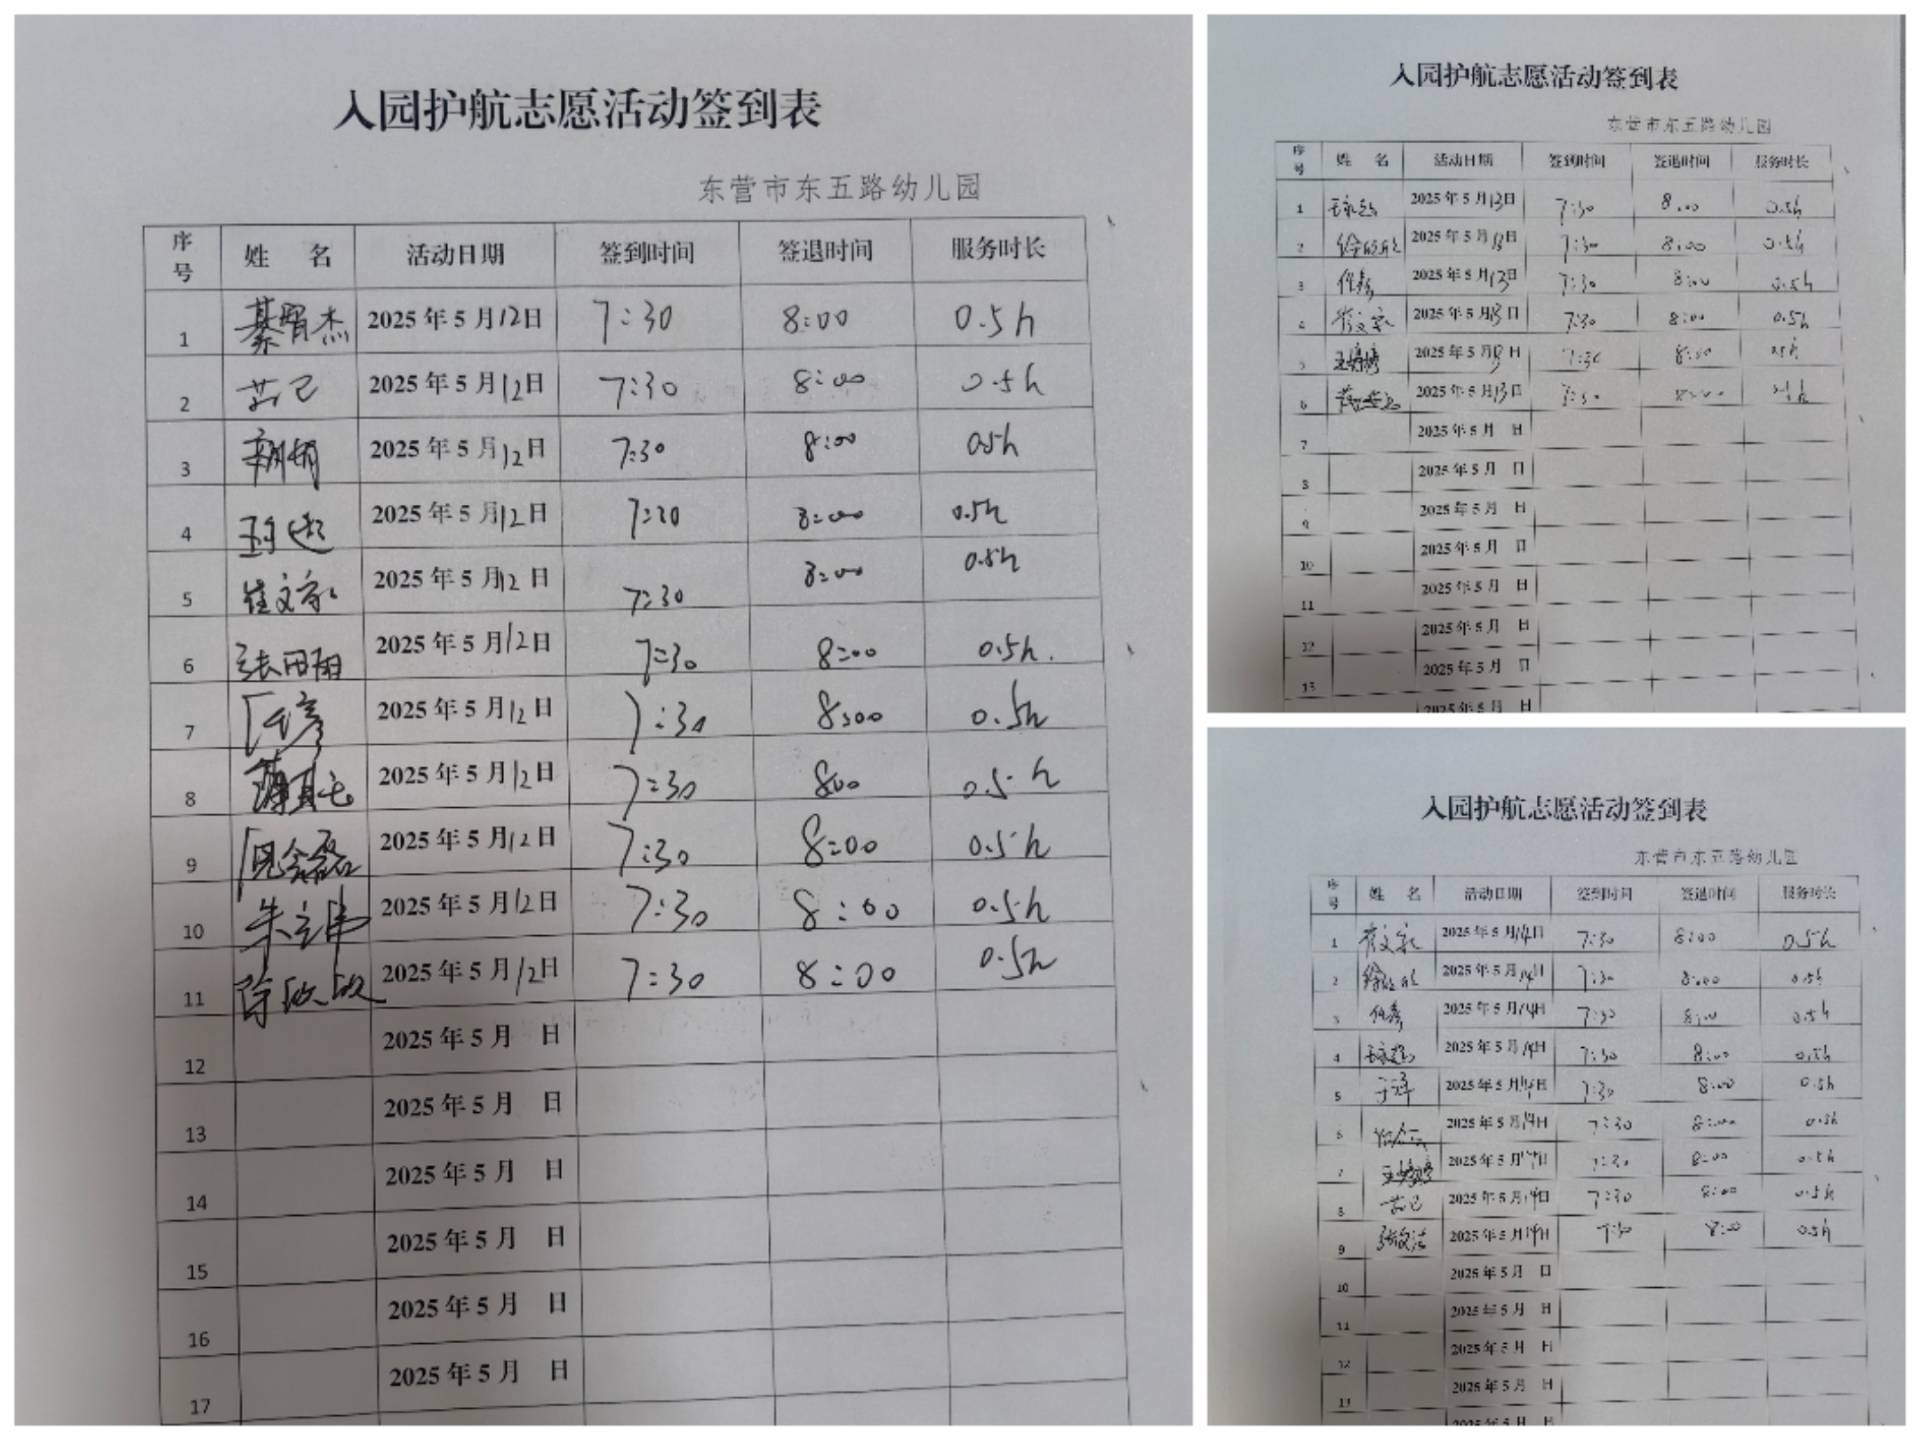 入园护航志愿活动签到表
东营市东五路幼儿园
序号 姓 名 活动日期 签到时间 签退时间 服务时长
1 綦胃杰 2025年5月12日 7:30 8:00 0.5h
2 2025年5月12日 7:30 8:00 0.5h
3 2025年5月12日 7:30 8:00 0.5h
4 2025年5月12日 7:30 8:00 0.5h
5 崔文家 2025年5月12日 7:30 8:00 0.5h
6 张田雨 2025年5月12日 7:30 8:00 0.5h.
7 任彦 2025年5月12日 7:30 8:00 0.5h
8 2025年5月12日 7:30 800 0.5h
9 2025年5月12日 7:30 8:00 0.5h
10 朱立伟 2025年5月12日 7:30 8:00 0.5h
11 2025年5月12日 7:30 8:00 0.5h
12 2025年5月 日
13 2025年5月 日
14 2025年5月 日
15 2025年5月 日
16 2025年5月 日
17 2025年5月 日
入园护航志愿活动签到表
东营市东五路幼儿园
序号 姓 名 活动日期 签到时间 签退时间 服务时长
1 2025年5月13日 7:30 8:00 0.5h
2 2025年5月13日 7:30 8:00 0.5h
3 任彦 2025年5月13日 7:30 8:00 0.5h
4 崔文家 2025年5月13日 7:30 8:00 0.5h
5 王婷婷 2025年5月13日 7:30 8:00 0.5h
6 2025年5月13日 7:30 8:00 0.5h
7 2025年5月 日
8 2025年5月 日
9 2025年5月 日
10 2025年5月 日
11 2025年5月 日
12 2025年5月 日
13 2025年5月 日
2025年5月 日
入园护航志愿活动签到表
东营市东五路幼儿园
序号 姓 名 活动日期 签到时间 签退时间 服务时长
1 崔文家 2025年5月14日 7:30 8:00 0.5h
2 2025年5月14日 7:30 8:00 0.5h
3 任彦 2025年5月14日 7:30 8:00 0.5h
4 2025年5月14日 7:30 8:00 0.5h
5 2025年5月14日 7:30 8:00 0.5h
6 2025年5月14日 7:30 8:00 0.5h
7 王婷婷 2025年5月14日 7:30 8:00 0.5h
8 2025年5月14日 7:30 8:00 0.5h
9 张文洁 2025年5月14日 7:30 8:00 0.5h
10 2025年5月 日
11 2025年5月 日
12 2025年5月 日
13 2025年5月 日
2025年5月 日